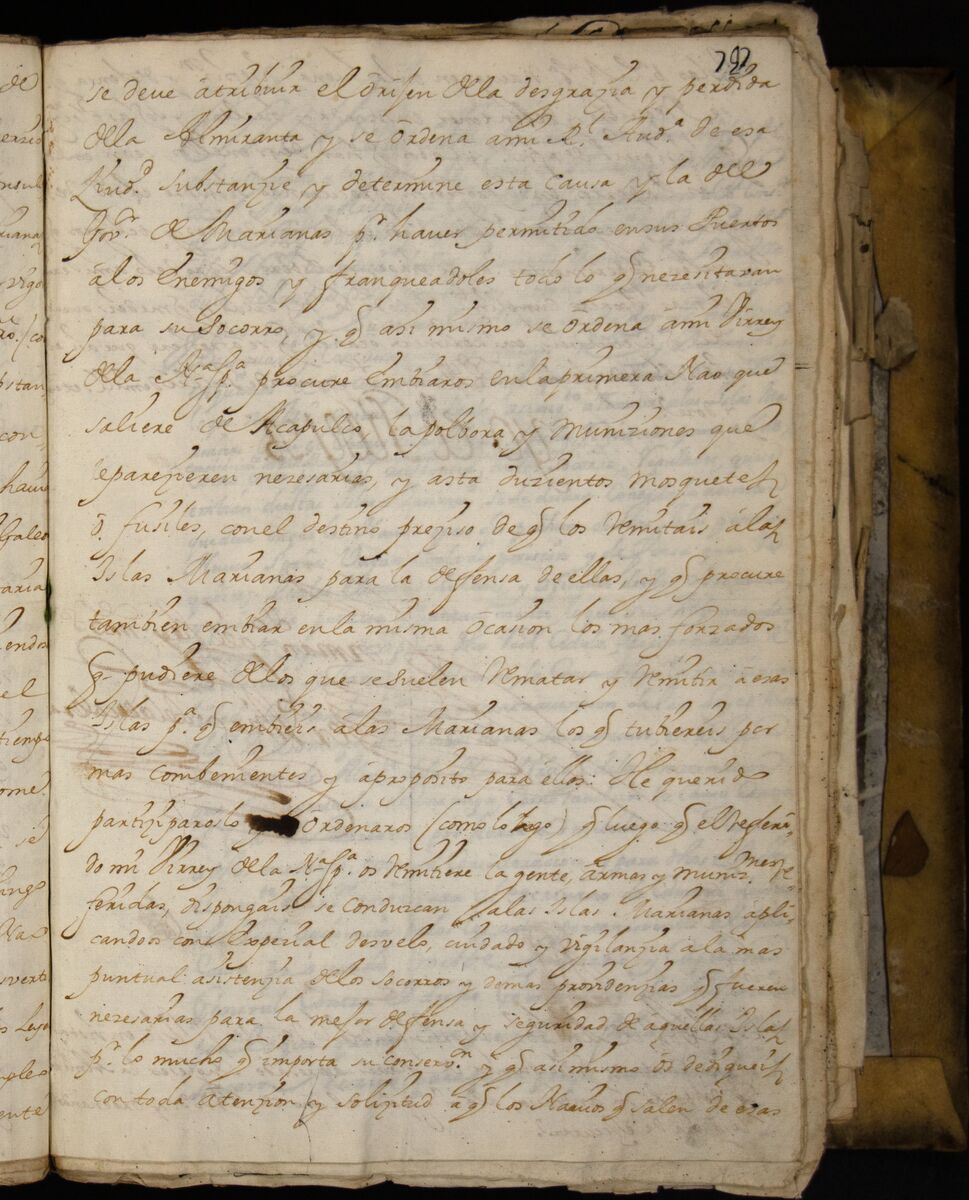 se deve âtribuir el órijen della desgrazia y perdida
della Almiranta y se ôrdena ami Rl. Audª. de esa
Ziud. substanzie y determine esta causa y la del
Govr. de Marianas pr. haver permitido ensus Puertos
âlos Enemigos y franqueadoles todo lo q nezesitaran
para su socorro, y q asi mismo se ôrdena âmi Virrey
della Nª. Spª. procure Embiaros enlaprimera Nao que
saliere de Acapulco lapolbora y Muniziones que
leparezieren nezesarias, y asta duzientos mosquetes
ô fusiles, conel destino preziso de q los Remitais âlas
Islas Marianas para la defensa de ellas, y q procure
tambien embiar enla misma Ôcasion los mas forzados
q pudiere dellos que sesuelen Rematar y Remitir â esas
Islas pª. q embieis âlas Marianas los q tubiereis por
mas combenientes y âproposito para êllos: He querido
partiziparoslo y Ôrdenaros (como lo hago) q luego q el Referi-
do mi Virrey della Nª. Spª. os Remitiere la gente, ârmas y muniz.nes Re-
feridas, dispongais se conduzcan âlas Islas Marianas âpli-
candoos con Espezial desvelo, cuidado y vigilanzia ala mas
puntual asistenzia dellos socorros y demas providenzias q fueren
nezesarias para la mejor defensa y seguridad de âquellas Islas
pr. lo mucho q importa su conserv.on y q asimismo ôs dediqueis
con toda atenzion y solizitud â q los Navios q salen de esas